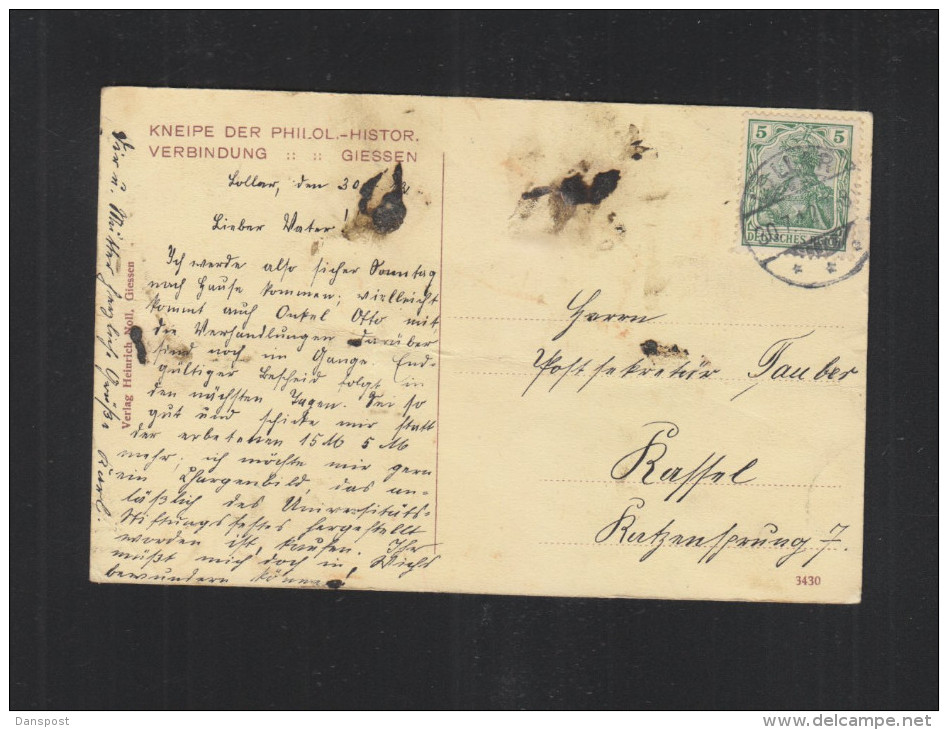 KNEIPE DER PHILOL.-HISTOR.
VERBINDUNG :: :: GIESSEN
Lollar, den 30
Lieber Vater!
Ich werde also sicher Sonntag
nach Hause kommen; vielleicht
kommt auch Onkel Otto mit
die Verhandlungen darüber
sind noch im Gange. End-
gültiger Bescheid folgt in
den nächsten Tagen. Sei so
gut und schicke mir statt
der erbetenen 15 M 5 M
mehr; ich möchte mir gern
ein Chargenbild, das an-
läßlich des Universitäts-
Stiftungsfestes hergestellt
worden ist kaufen. Ihr
müßt mich doch in Wichs
bewundern können!
Mutter herzliche Grüße
Karl.
Verlag Heinrich Noll, Giessen
5 5
DEUTSCHES REICH
Herrn
Postsekretär Tauber
Kassel
Katzensprung 7.
3430
Danspost
www.delcampe.net